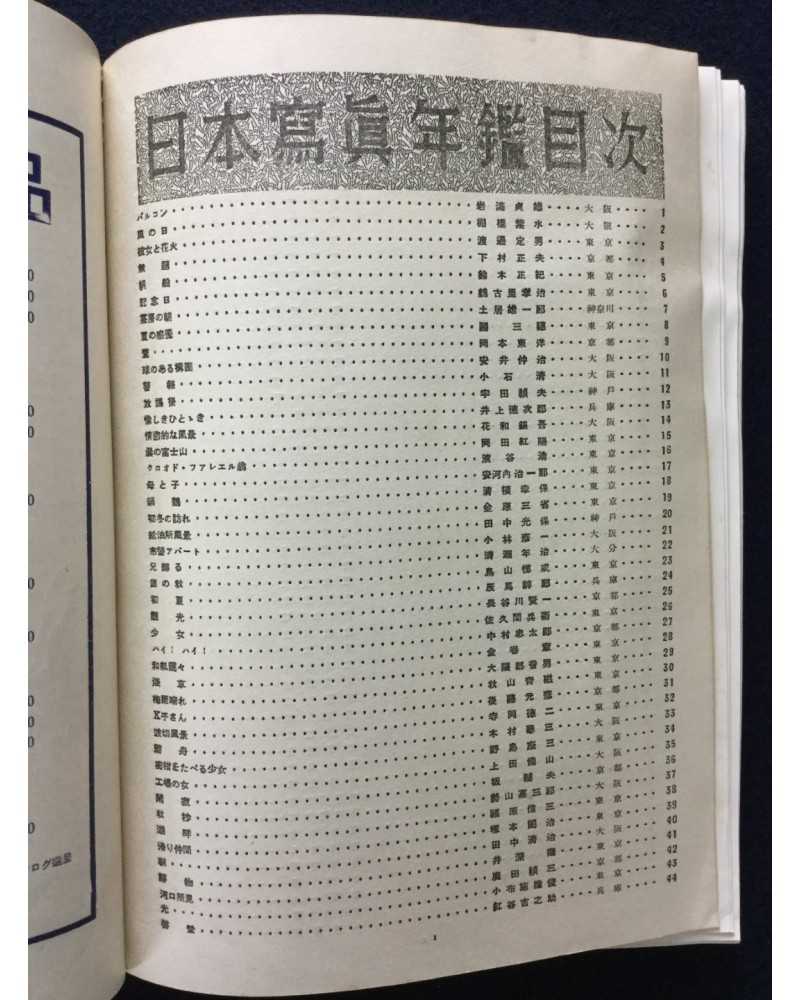 日本寫眞年鑑目次
バルコン 岩 貞雄 大阪 1
風の日 棚橋紫水 大阪 2
彼女と花火 渡邊定男 東京 3
無題 下村正夫 京都 4
帆船 鈴木正紀 東京 5
記念日 鶴古里孝治 東京 6
茶房の朝 土居雄一郎 神奈川 7
夏の感覺 關三 東京 8
雪 岡本東洋 京都 9
球のある構圖 安井仲治 大阪 10
警報 小石清 大阪 11
放課後 宇田禎夫 神戸 12
愉しきひとゝき 井上徳次郎 兵庫 13
的な風景 花和銀吾 大阪 14
の富士山 岡田紅陽 東京 15
クロオド・ファレエル翁 濱谷浩 東京 16
母と子 安河内治一郎 東京 17
鍋鶴 清棲幸保 東京 18
初冬の訪れ 金原三省 東京 19
給油所風景 田中光保 神戸 20
市營アパート 小林 一 大阪 21
兄歸る 清瀬年治 大分 22
の秋 鳥山悌成 東京 23
初夏 辰馬 郎 兵庫 24
觀光 長谷川賢一 京都 25
少女 佐久間兵衞 東京 26
ハイ！ハイ！ 中村忠太郎 京都 27
和氣靄々 金谷 東京 28
淺草 大隈 男 東京 29
梅雨晴れ 秋山青磁 東京 30
X子さん 後藤元彦 京都 31
波切風景 寺岡徳二 東京 32
舟 木村專三 大阪 33
密柑をたべる少女 野島康三 東京 34
工場の女 上田備山 大阪 35
閑寂 坂 夫 京都 36
秋抄 勢山喜三郎 大阪 37
湖畔 福原信三 東京 38
歸り仲間 塚本閤治 東京 39
朝 田中清治 大阪 40
靜物 井深 東京 41
河口所見 廣田禎三 京都 42
光 小布施 俊 東京 43
啓蟄 紅谷吉之助 兵庫 44
1